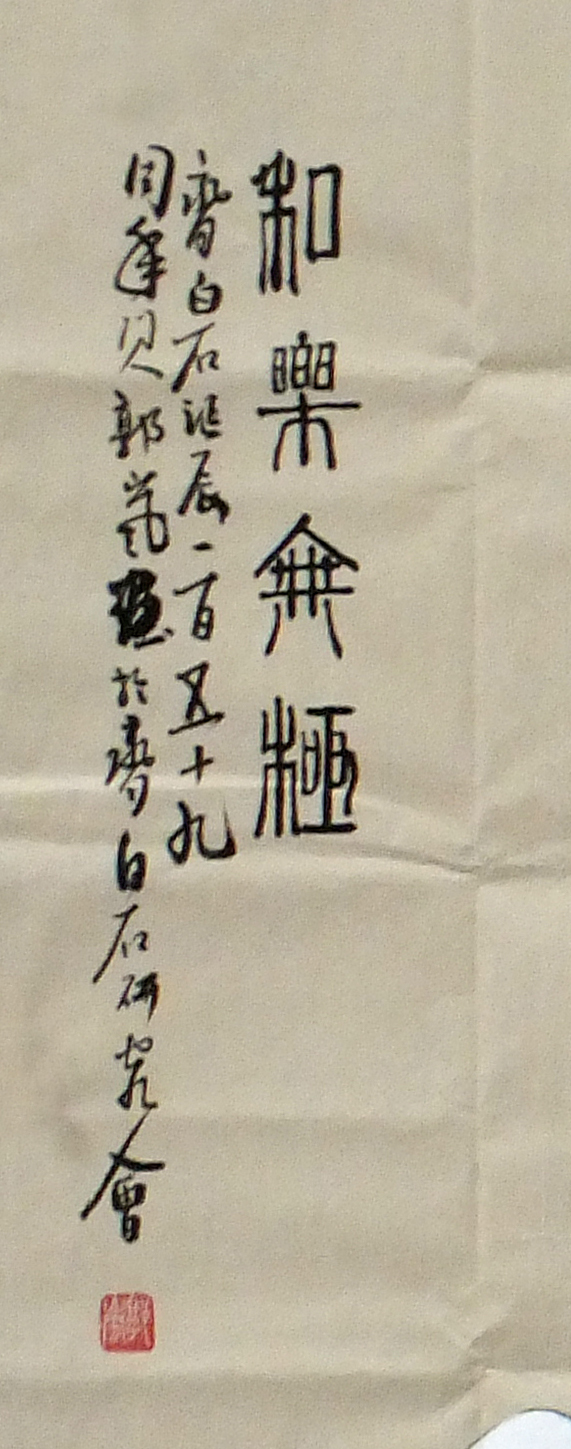 和樂無極
齊白石誕辰一百五十九
周年 郭 畫於齊白石研究會